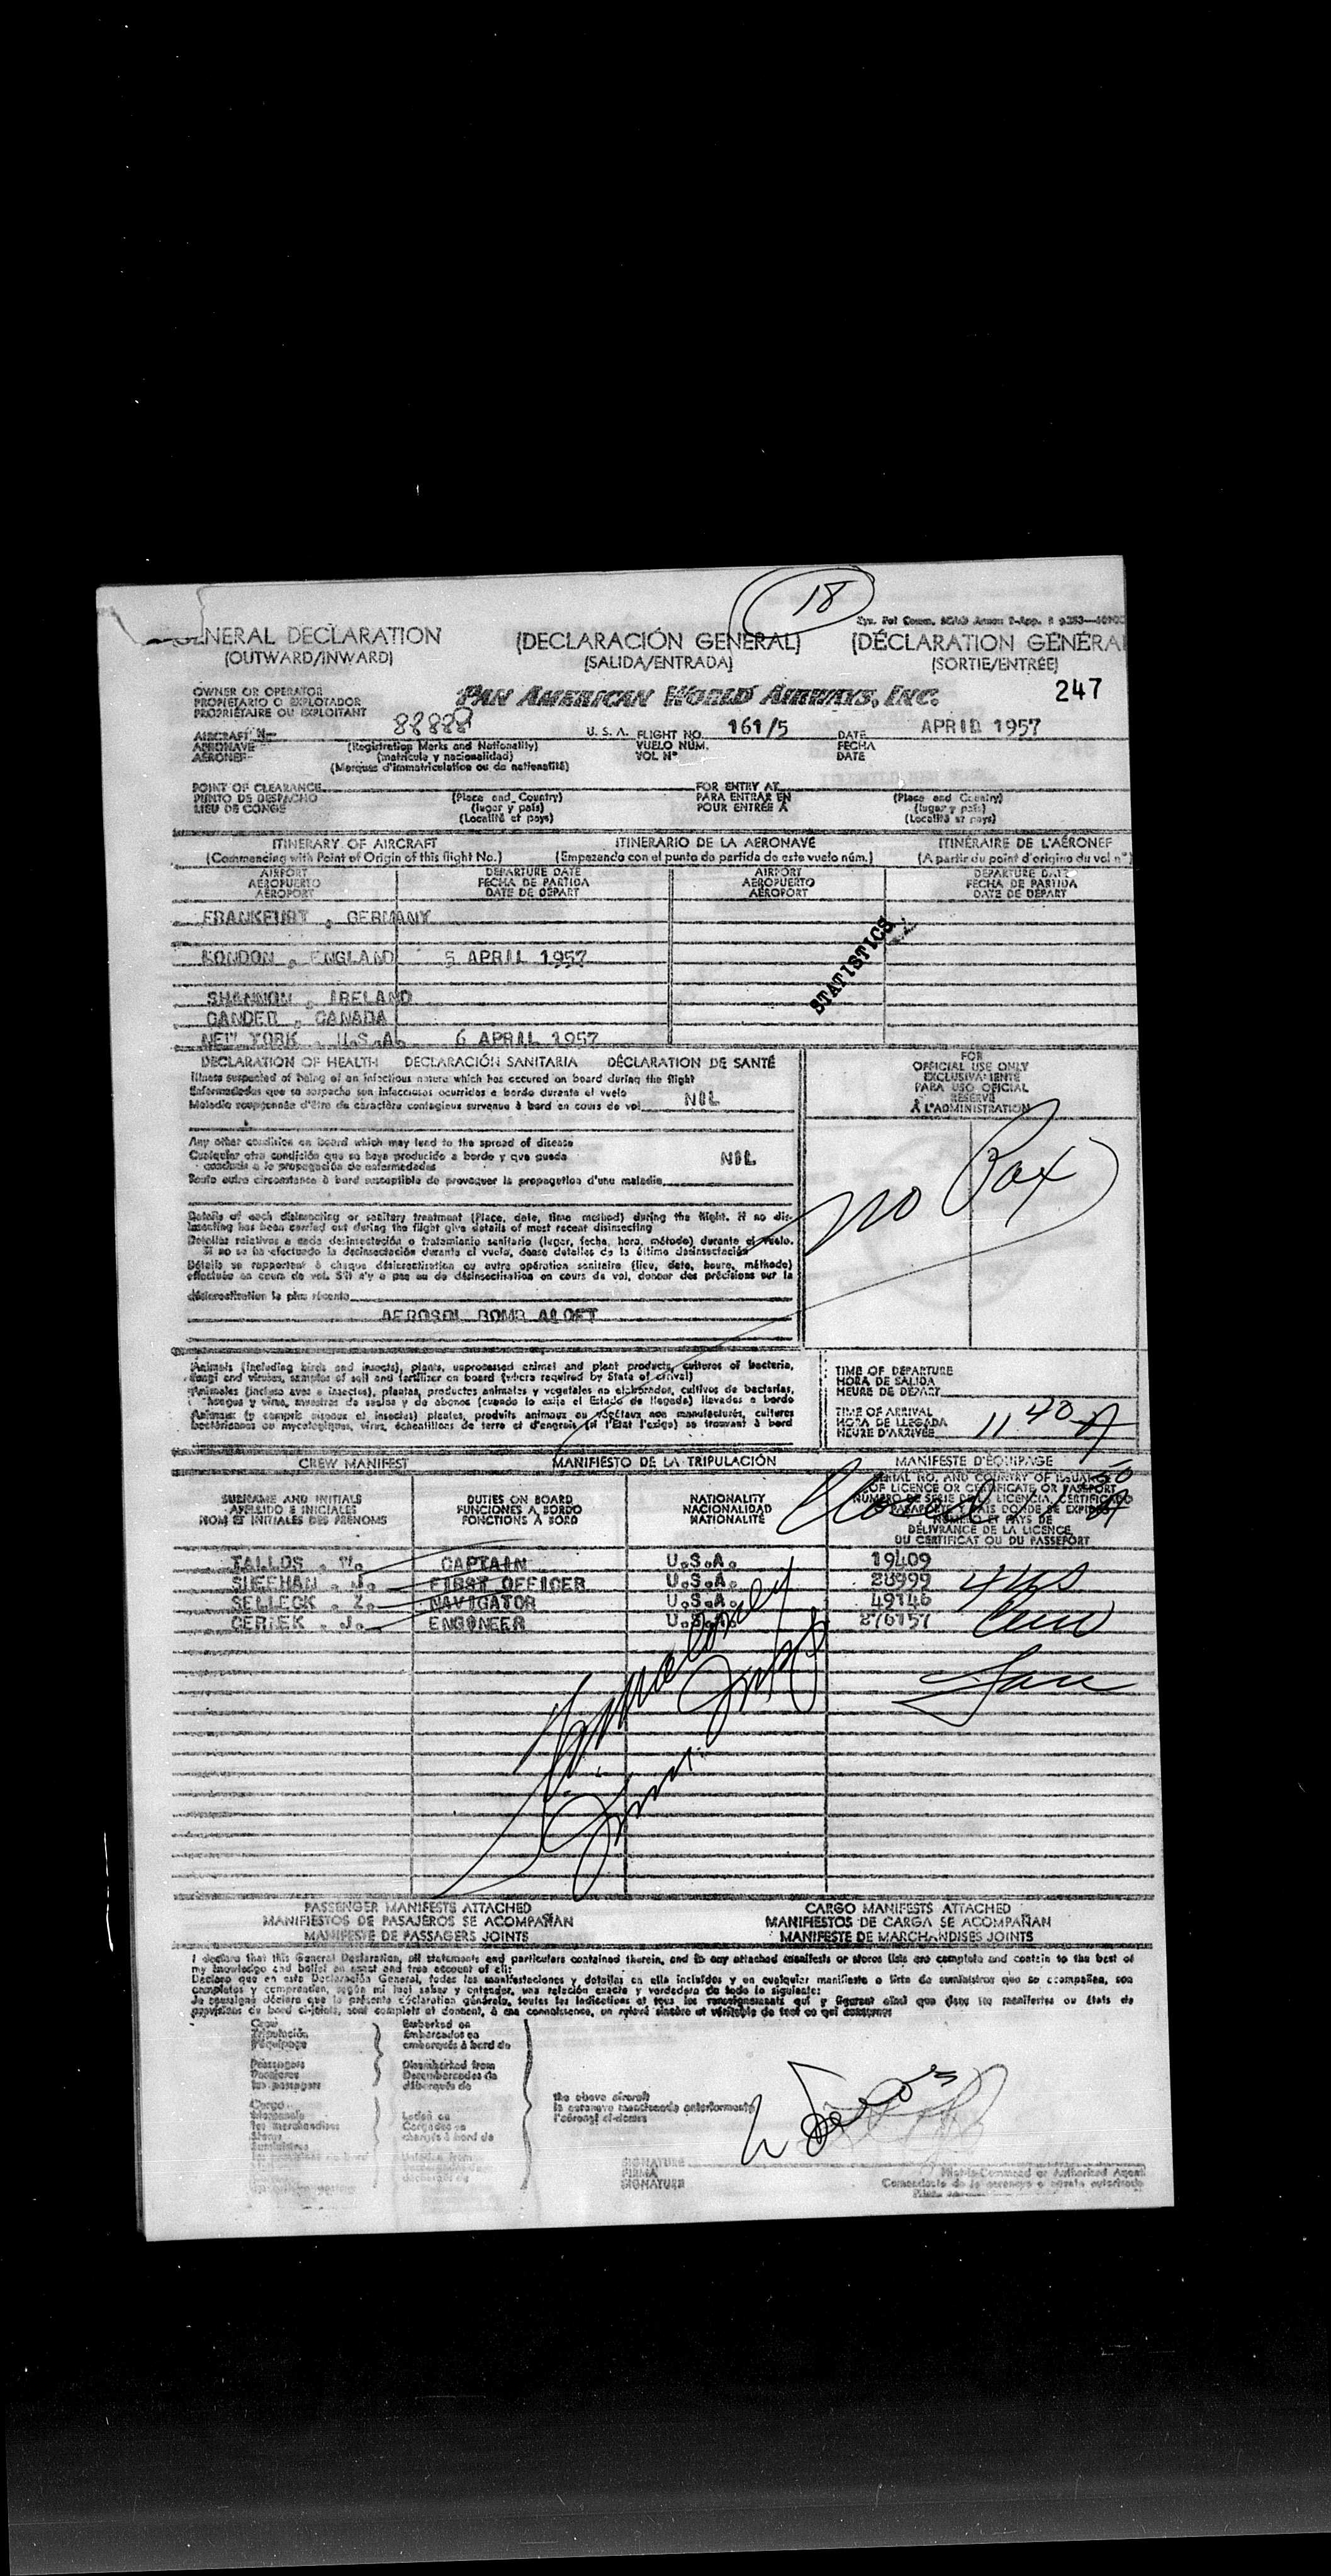 18
GENERAL DECLARATION (DECLARACIÓN GENERAL) (DÉCLARATION GÉNÉRAL
(OUTWARD/INWARD) (SALIDA/ENTRADA) (SORTIE/ENTRÉE)
OWNER OR OPERATOR
PROPIETARIO O EXPLOTADOR
PROPRIÉTAIRE OU EXPLOITANT
PAN AMERICAN WORLD AIRWAYS, INC. 247
AIRCRAFT N- 88888 U. S. A. FLIGHT NO. 161/5 DATE APRIL 1957
AERONAVE (Registration Marks and Nationality) VUELO NUM. FECHA
AÉRONEF (matrícula y nacionalidad) VOL Nº DATE
(Marques d'immatriculation ou de nationalité)
POINT OF CLEARANCE FOR ENTRY AT
PUNTO DE DESPACHO (Place and Country) PARA ENTRAR EN (Place and Country)
LIEU DE CONGÉ (lugar y país) POUR ENTRÉE À (lugar y país)
(Localité et pays) (Localité et pays)
ITINERARY OF AIRCRAFT ITINERARIO DE LA AERONAVE ITINÉRAIRE DE L'AÉRONEF
(Commencing with Point of Origin of this flight No.) (Empezando con el punto de partida de este vuelo núm.) (A partir du point d'origine du vol nº)
AIRPORT DEPARTURE DATE AIRPORT DEPARTURE DATE
AEROPUERTO FECHA DE PARTIDA AEROPUERTO FECHA DE PARTIDA
AÉROPORT DATE DE DÉPART AÉROPORT DATE DE DÉPART
FRANKFURT , GERMANY
LONDON , ENGLAND 5 APRIL 1957
STATISTICS
SHANNON , IRELAND
GANDER , CANADA
NEW YORK , U.S.A. 6 APRIL 1957
DECLARATION OF HEALTH DECLARACIÓN SANITARIA DÉCLARATION DE SANTÉ
Illness suspected of being of an infectious nature which has occured on board during the flight
Enfermedades que se sospecha son infecciosas ocurridas a bordo durante el vuelo
Maladie soupçonnée d'être de caractère contagieux survenue à bord en cours de vol NIL
FOR
OFFICIAL USE ONLY
EXCLUSIVAMENTE
PARA USO OFICIAL
RÉSERVÉ
À L'ADMINISTRATION
Any other condition on board which may lead to the spread of disease
Cualquier otra condición que se haya producido a bordo y que pueda
conducir a la propagación de enfermedades NIL
Toute autre circonstance à bord susceptible de provoquer la propagation d'une maladie
no Pax
Details of each disinsecting or sanitary treatment (Place, date, time method) during the flight. If no dis-
insecting has been carried out during the flight give details of most recent disinsecting
Detalles relativos a cada desinsectación o tratamiento sanitario (lugar, fecha, hora, método) durante el vuelo.
Si no se ha efectuado la desinsectación durante el vuelo, dense detalles de la última desinsectación
Détails se rapportant à chaque désinsectisation ou autre opération sanitaire (lieu, date, heure, méthode)
effectuée en cours de vol. S'il n'y a pas eu de désinsectisation en cours de vol, donner des précisions sur la
désinsectisation la plus récente
AEROSOL BOMB ALOFT
Animals (including birds and insects), plants, unprocessed animal and plant products, cultures of bacteria,
fungi and viruses, samples of soil and fertilizer on board (where required by State of arrival)
Animales (incluso aves e insectos), plantas, productos animales y vegetales no elaborados, cultivos de bacterias,
hongos y virus, muestras de suelos y de abonos (cuando lo exija el Estado de llegada) llevados a bordo
Animaux (y compris oiseaux et insectes) plantes, produits animaux ou végétaux non manufacturés, cultures
bactériennes ou mycologiques, virus, échantillons de terre et d'engrais (si l'État l'exige) se trouvant à bord
TIME OF DEPARTURE
HORA DE SALIDA
HEURE DE DÉPART
TIME OF ARRIVAL
HORA DE LLEGADA
HEURE D'ARRIVÉE 11 40 A
CREW MANIFEST MANIFIESTO DE LA TRIPULACIÓN MANIFESTE D'ÉQUIPAGE
SURNAME AND INITIALS DUTIES ON BOARD NATIONALITY
APELLIDO E INICIALES FUNCIONES A BORDO NACIONALIDAD
NOM ET INITIALES DES PRÉNOMS FONCTIONS À BORD NATIONALITÉ
SERIAL NO. AND COUNTRY OF ISSUANCE
OF LICENCE OR CERTIFICATE OR PASSPORT
NÚMERO DE SERIE DE LA LICENCIA, CERTIFICADO
PASAPORTE Y PAÍS DONDE SE EXPIDIÓ
NUMÉRO ET PAYS DE
DÉLIVRANCE DE LA LICENCE
DU CERTIFICAT OU DU PASSEPORT
TALLOS . W. CAPTAIN U.S.A. 19409
SHEEHAN . J. FIRST OFFICER U.S.A. 28999
SELLECK . Z. NAVIGATOR U.S.A. 49146
GERTEK . J. ENGINEER U.S.A. 276157
PASSENGER MANIFESTS ATTACHED CARGO MANIFESTS ATTACHED
MANIFIESTOS DE PASAJEROS SE ACOMPAÑAN MANIFIESTOS DE CARGA SE ACOMPAÑAN
MANIFESTE DE PASSAGERS JOINTS MANIFESTE DE MARCHANDISES JOINTS
I declare that this General Declaration, all statements and particulars contained therein, and in any attached manifests or stores lists are complete and contain to the best of
my knowledge and belief an exact and true account of all:
Declaro que en esta Declaración General, todas las manifestaciones y detalles en ella incluidos y en cualquier manifiesto o lista de suministros que se acompañan, son
completos y comprenden, según mi leal saber y entender, una relación exacta y verdadera de todo lo siguiente:
Je soussigné déclare que la présente déclaration générale, toutes les indications et tous les renseignements qui y figurent ainsi que dans les manifestes ou états de
provisions de bord ci-joints, sont complets et donnent, à ma connaissance, un relevé sincère et véritable de tout ce qui concerne
Crew Embarked on
Tripulación Embarcados en
l'équipage embarqués à bord de
Passengers Disembarked from
Pasajeros Desembarcados de
les passagers débarqués de
Cargo
Mercancía Laden on
les marchandises Cargados en
Stores chargés à bord de
Suministros
the above aircraft
la aeronave mencionada anteriormente
l'aéronef ci-dessus
SIGNATURE
FIRMA
SIGNATURE
Pilot-in-Command or Authorized Agent
Comandante de la aeronave o agente autorizado